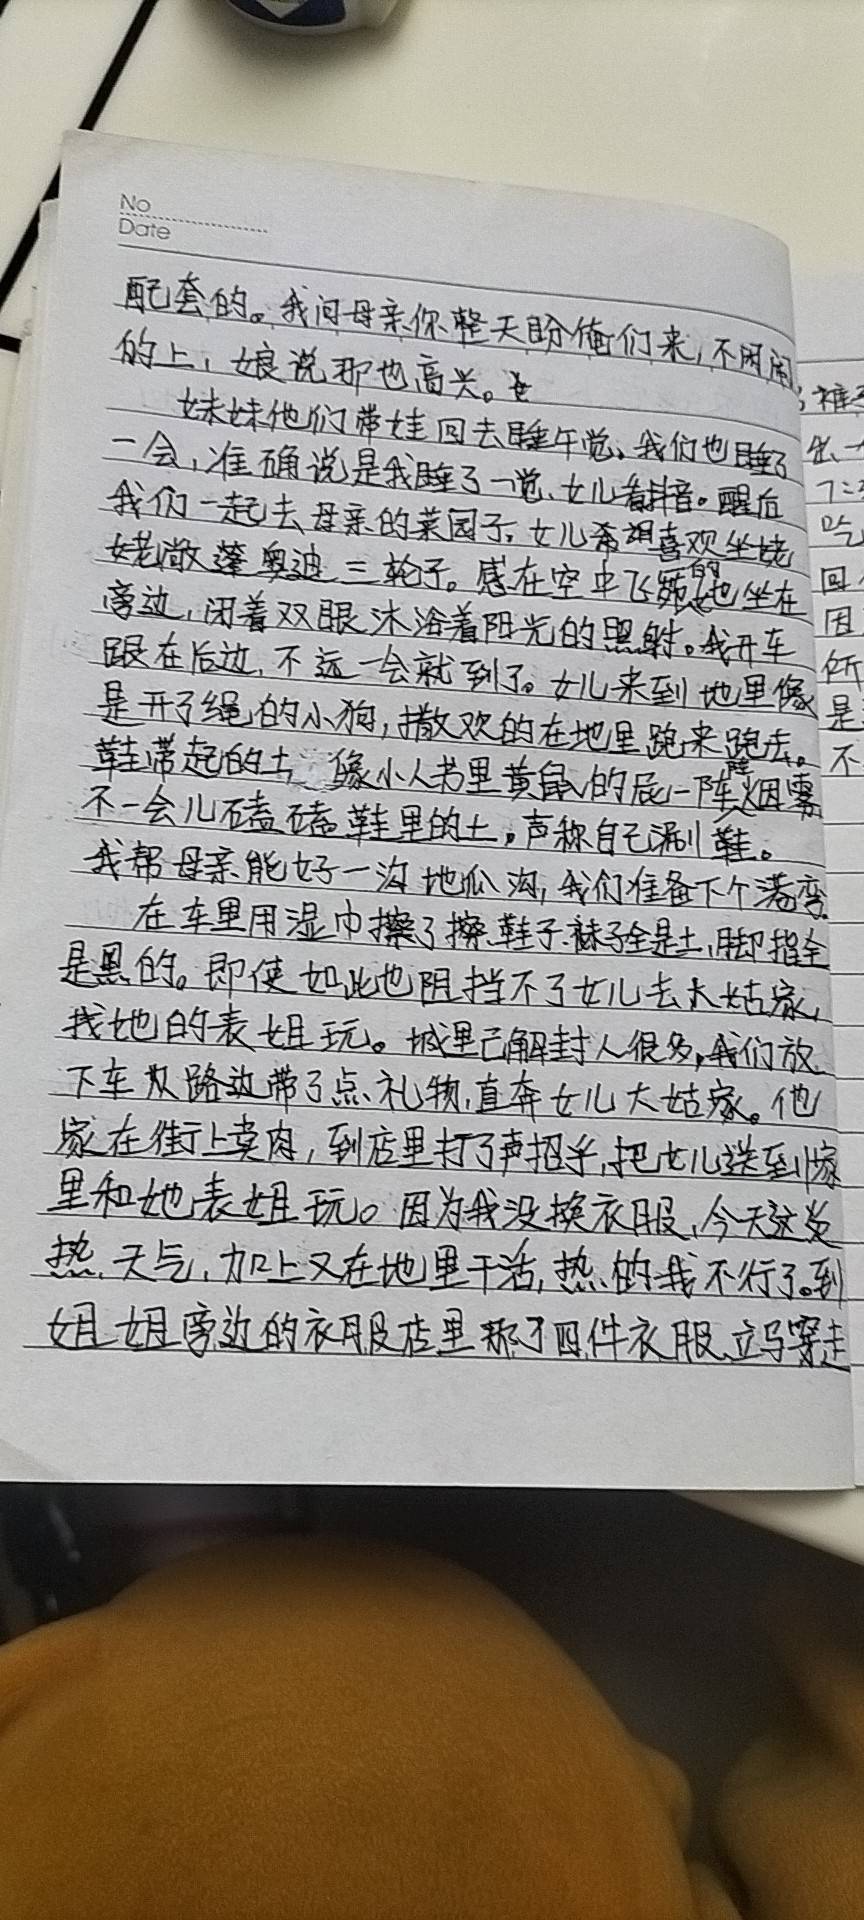 No
Date
配套的。我问母亲你整天盼俺们来,不闲闹
的上,娘说那也高兴。
妹妹他们带娃回去睡午觉、我们也睡了
一会,准确说是我睡了一觉、女儿看抖音。醒后
我们一起去母亲的菜园子,女儿希望喜欢坐姥
姥敞蓬奥迪三轮子。感在空中飞的她坐在
旁边,闭着双眼沐浴着阳光的照射。我开车
跟在后边,不远一会就到了。女儿来到地里像
是开了绳的小狗,撒欢的在地里跑来跑去。
鞋带起的土,像小人书里黄鼠的屁一阵烟雾
不一会儿磕磕鞋里的土,声称自己漏鞋。
我帮母亲能好一沟地瓜沟,我们准备下个港弯。
在车里用湿巾擦了擦鞋子、袜子全是土,脚指全
是黑的。即使如此也阻挡不了女儿去大姑家,
找她的表姐玩。城里已解封人很多,我们放
下车从路边带了点礼物,直奔女儿大姑家。他
家在街上卖肉,到店里打了声招乎,把女儿送到家
里和她表姐玩。因为我没换衣服、今天这么
热天气,加上又在地里干活,热的我不行了。到
姐姐旁边的衣服店里 了四件衣服、立马穿走